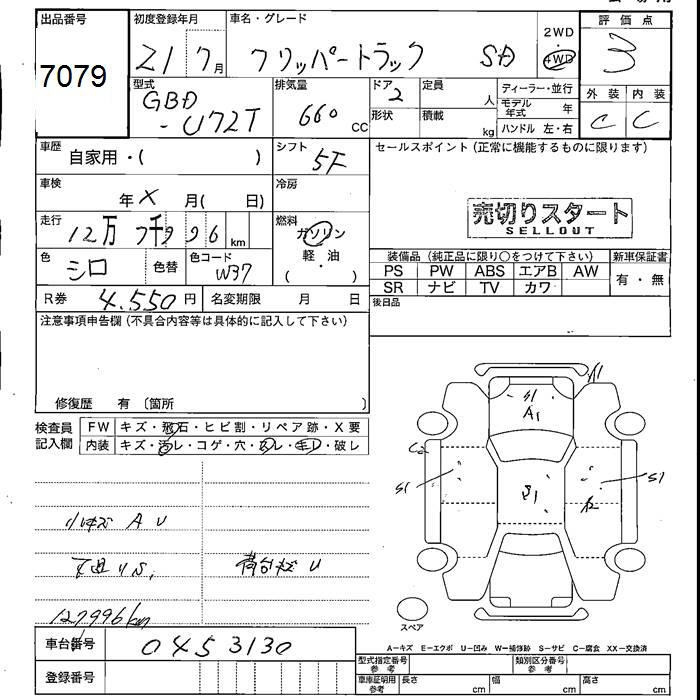 出品番号
7079
初度登録年月
21 7月
車名・グレード
クリッパートラック SD
2WD
・
4WD
評価点
3
外装 内装
C C
型式
GBD
-U72T
排気量
660 CC
ドア
2
形状
定員
人
積載
kg
ディーラー・並行
モデル年式 年
ハンドル 左・右
車歴
自家用・( )
シフト
5F
セールスポイント (正常に機能するものに限ります)
車検
年 X 月( 日)
冷房
売切りスタート
SELLOUT
走行
12万 7千996 km
燃料
ガソリン
・
軽・油
( )
色
シロ
色替
色コード
W37
装備品 (純正品に限り○をつけて下さい)
新車保証書
PS PW ABS エアB AW
有・無
SR ナビ TV カワ
R券 4,550円
名変期限 月 日
後日品
注意事項申告欄 (不具合内容等は具体的に記入して下さい)
修復歴 有 〔箇所 〕
検査員
記入欄
FW キズ・飛石・ヒビ割・リペア跡・X要
内装 キズ・汚レ・コゲ・穴・スレ・キレ・破レ
A1
S1
A1
C2
S1
S1
S1
A2
小キズ A U
下廻りS,
荷台キズ U
127,996km
スペア
車台番号 0453130
登録番号
A－キズ E－エクボ U－凹み W－補修跡 S－サビ C－腐食 XX－交換済
型式指定番号
参考
類別区分番号
参考
車庫証明用
参考
長さ cm 幅 cm 高さ cm